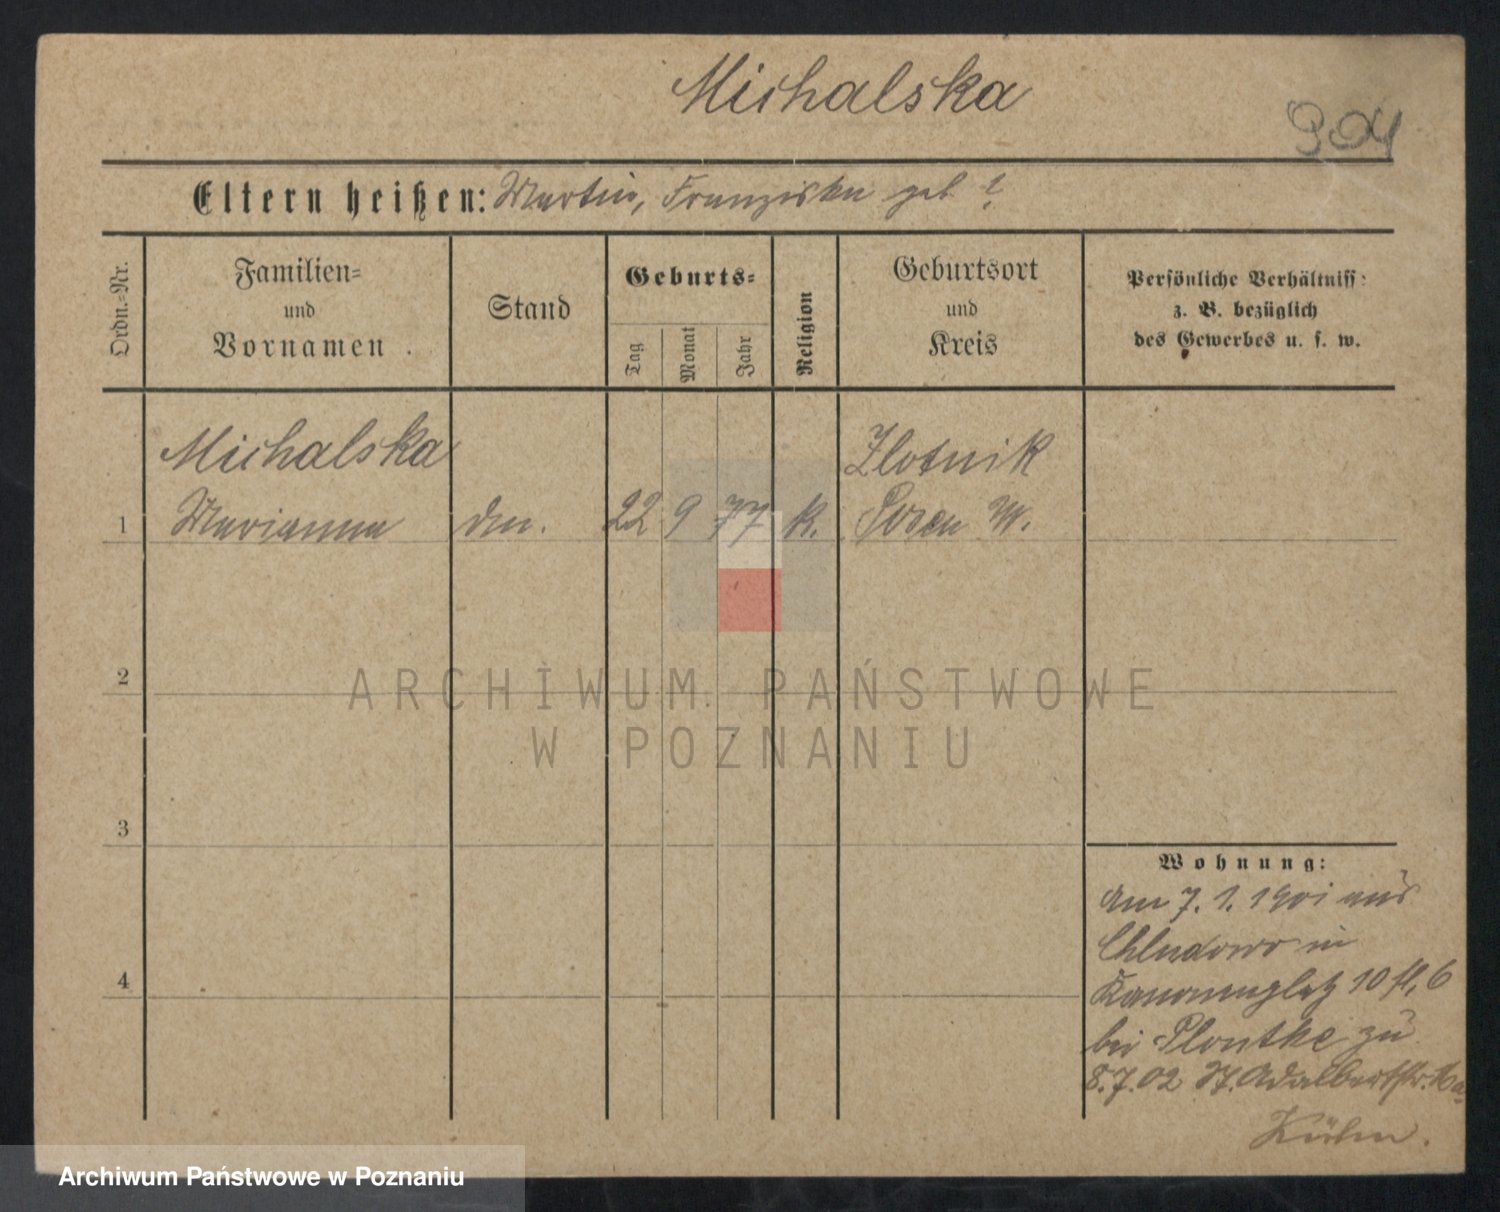 Michalska
Eltern heißen: Martin, Franziska geb ?
Ordn.=Nr.
Familien=
und
Vornamen
Stand
Geburts=
Tag
Monat
Jahr
Religion
Geburtsort
und
Kreis
Persönliche Verhältniss:
z. B. bezüglich
des Gewerbes u. s. w.
Michalska
Zlotnik
1 Marianna 22 9 77 k. Posen W.
2
3
4
Wohnung:
Am 7. 1. 1901 aus
Chludowo in
Kanonenplatz 10 6
bei Plontke zu
8.7.02 St. Adalbertstr.
Kühn.
ARCHIWUM PAŃSTWOWE
W POZNANIU
Archiwum Państwowe w Poznaniu